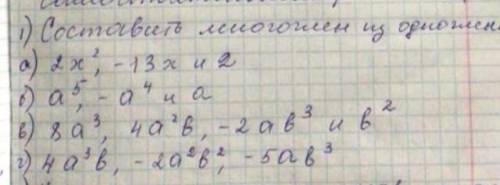 1) Составить многочлен из одночлен
а) 2x², -13x и 2
б) a⁵, -a⁴ и a
в) 8a³, 4a²b, -2ab³ и b²
г) 4a³b, -2a²b², -5ab³